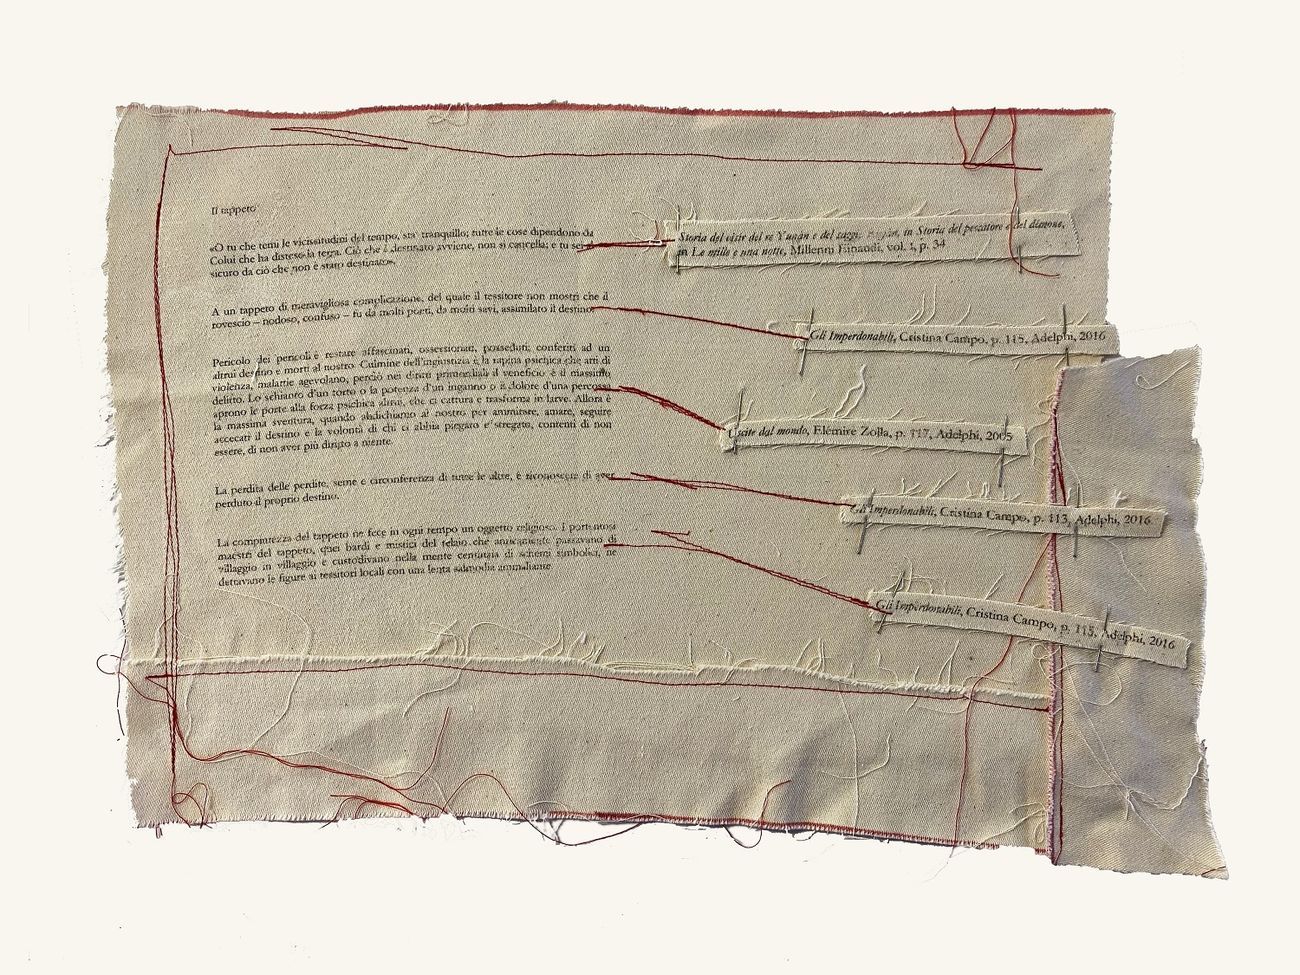 Il tappeto
«O tu che temi le vicissitudini del tempo, sta' tranquillo; tutte le cose dipendono da
Colui che ha disteso la terra. Ciò che è destinato avviene, non si cancella; e tu sei
sicuro da ciò che non è stato destinato».
A un tappeto di meravigliosa complicazione, del quale il tessitore non mostri che il
rovescio – nodoso, confuso – fu da molti poeti, da molti savi, assimilato il destino.
Pericolo dei pericoli è restare affascinati, ossessionati, posseduti; conferiti ad un
altrui destino e morti al nostro. Culmine dell'ingiustizia è la rapina psichica che atti di
violenza, malattie agevolano, perciò nei diritti primordiali il veneficio è il massimo
delitto. Lo schianto d'un torto o la potenza d'un inganno o il dolore d'una percossa
aprono le porte alla forza psichica altrui, che ci cattura e trasforma in larve. Allora è
la massima sventura, quando abdichiamo al nostro per ammirare, amare, seguire
accecati il destino e la volontà di chi ci abbia piegato e stregato, contenti di non
essere, di non aver più diritto a niente.
La perdita delle perdite, seme e circonferenza di tutte le altre, è riconoscere di aver
perduto il proprio destino.
La compiutezza del tappeto ne fece in ogni tempo un oggetto religioso. I portentosi
maestri del tappeto, quei bardi e mistici del telaio che anticamente passavano di
villaggio in villaggio e custodivano nella mente centinaia di schemi simbolici, ne
dettavano le figure ai tessitori locali con una lenta salmodia ammaliante.
Storia del visir del re Yunàn e del saggio Dubàn, in Storia del pescatore e del démone,
in Le mille e una notte, Millenni Einaudi, vol. I, p. 34
Gli Imperdonabili, Cristina Campo, p. 115, Adelphi, 2016
Uscite dal mondo, Elémire Zolla, p. 117, Adelphi, 2005
Gli Imperdonabili, Cristina Campo, p. 113, Adelphi, 2016
Gli Imperdonabili, Cristina Campo, p. 115, Adelphi, 2016